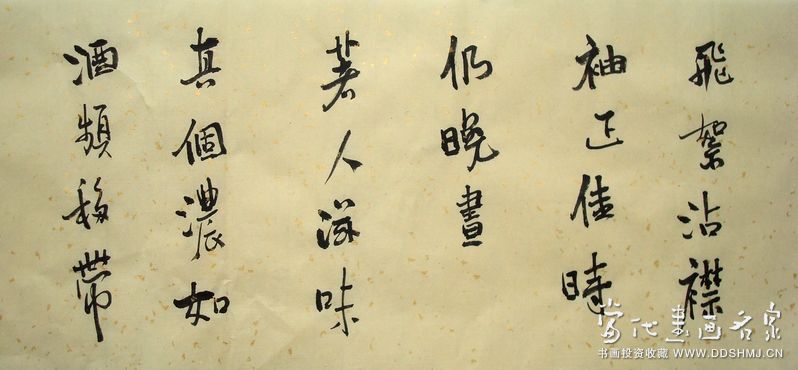 飛絮沾襟
袖正佳時
仍晚晝
著人滋味
真個濃如
酒頻移帶
當代書画名家
书画投资收藏 WWW.DDSHMJ.CN